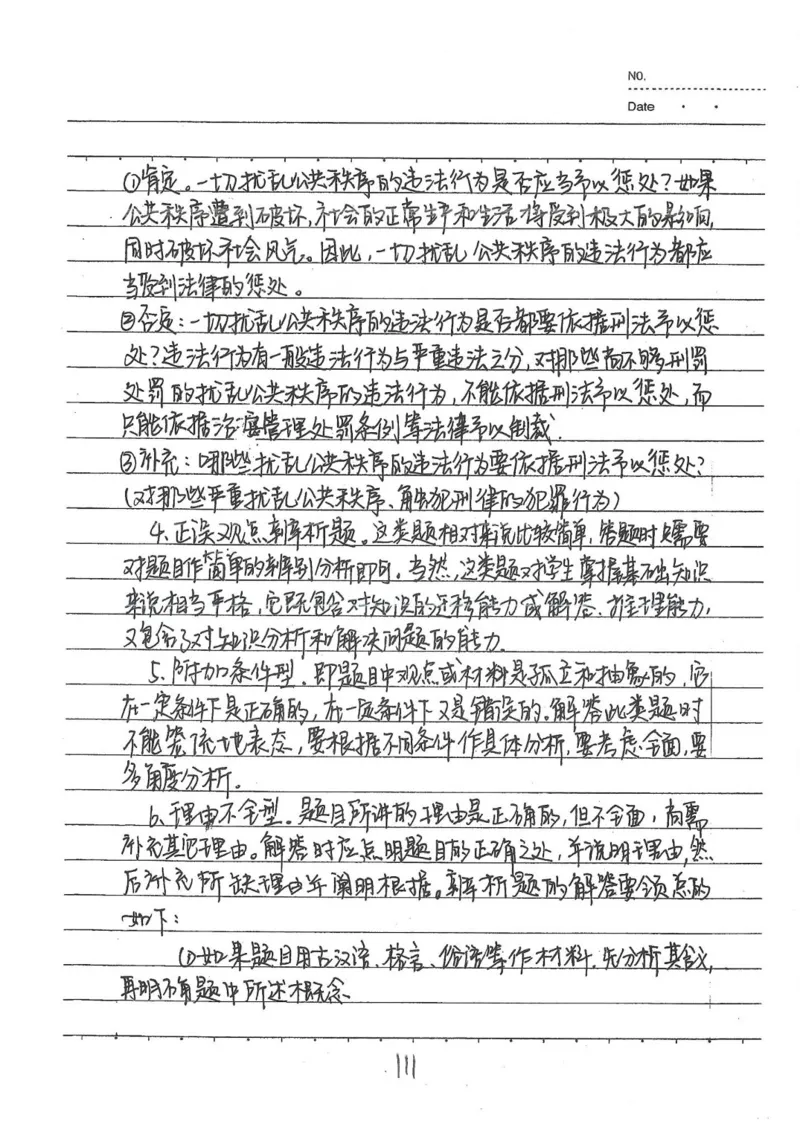 NO.
Date · ·
①肯定。一切扰乱公共秩序的违法行为是否应当予以惩处？如果
公共秩序遭到破坏，社会的正常生产和生活将受到极大的影响，
同时破坏社会风气。因此，一切扰乱公共秩序的违法行为都应
当受到法律的惩处。
②否定：一切扰乱公共秩序的违法行为是否都要依据刑法予以惩
处？违法行为有一般违法行为与严重违法之分，对那些尚不够刑罚
处罚的扰乱公共秩序的违法行为，不能依据刑法予以惩处，而
只能依据治安管理处罚条例等法律予以制裁.
③补充：哪些扰乱公共秩序的违法行为要依据刑法予以惩处？
（对那些严重扰乱公共秩序、触犯刑律的犯罪行为）
4.正误观点辨析题。这类题相对来说比较简单，答题时只需要
对题目作简单的辨别分析即可。当然，这类题对学生掌握基础知识
来说相当严格，它既包含对知识的迁移能力或解答、推理能力，
又包含了对知识分析和解决问题的能力.
5.附加条件型.即题目中观点或材料是孤立和抽象的，它
在一定条件下是正确的，在一定条件下又是错误的。解答此类题时
不能笼统地表态，要根据不同条件作具体分析，要考虑全面，要
多角度分析。
6.理由不全型。题目所讲的理由是正确的，但不全面，尚需
补充其它理由。解答时应点明题目的正确之处，并说明理由，然
后补充所缺理由并阐明根据。辨析题的解答要领总的
如下：
①如果题目用古汉语、格言、俗语等作材料.先分析其含义，
再明确题中所述概念.
111